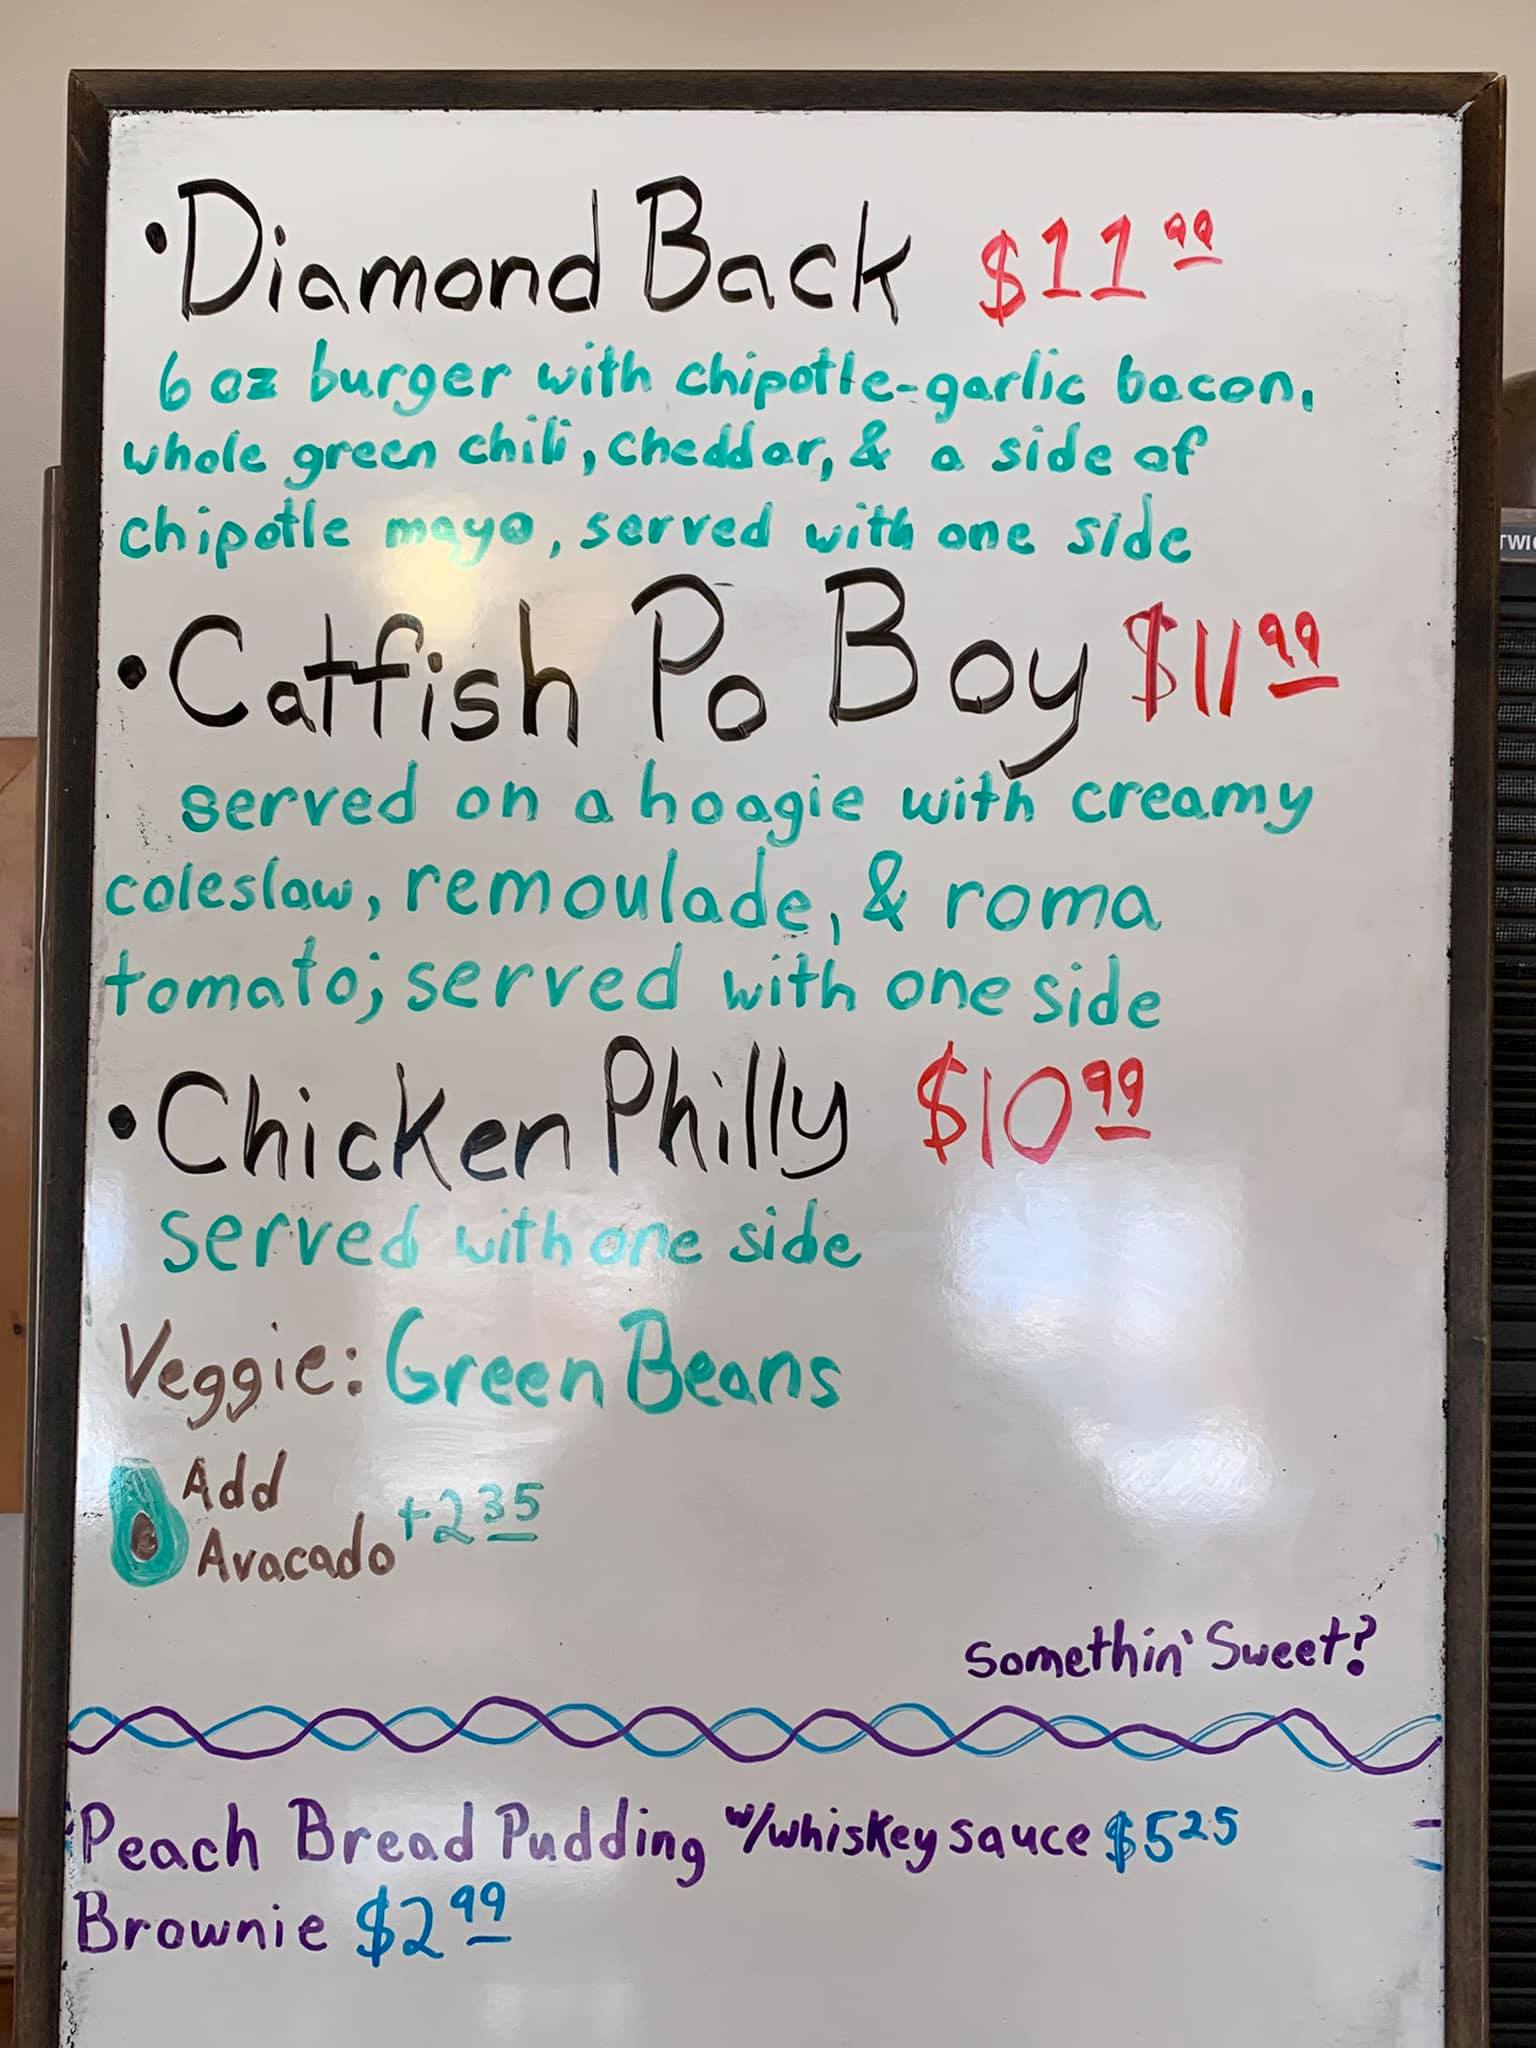 • Diamond Back $11.99
6 oz burger with chipotle-garlic bacon,
whole green chili, cheddar, & a side of
chipotle mayo, served with one side
• Catfish Po Boy $11.99
served on a hoagie with creamy
coleslaw, remoulade, & roma
tomato; served with one side
• Chicken Philly $10.99
served with one side
Veggie: Green Beans
Add
Avacado +2.35
Somethin' Sweet?
Peach Bread Pudding w/whiskey sauce $5.25
Brownie $2.99
TWI